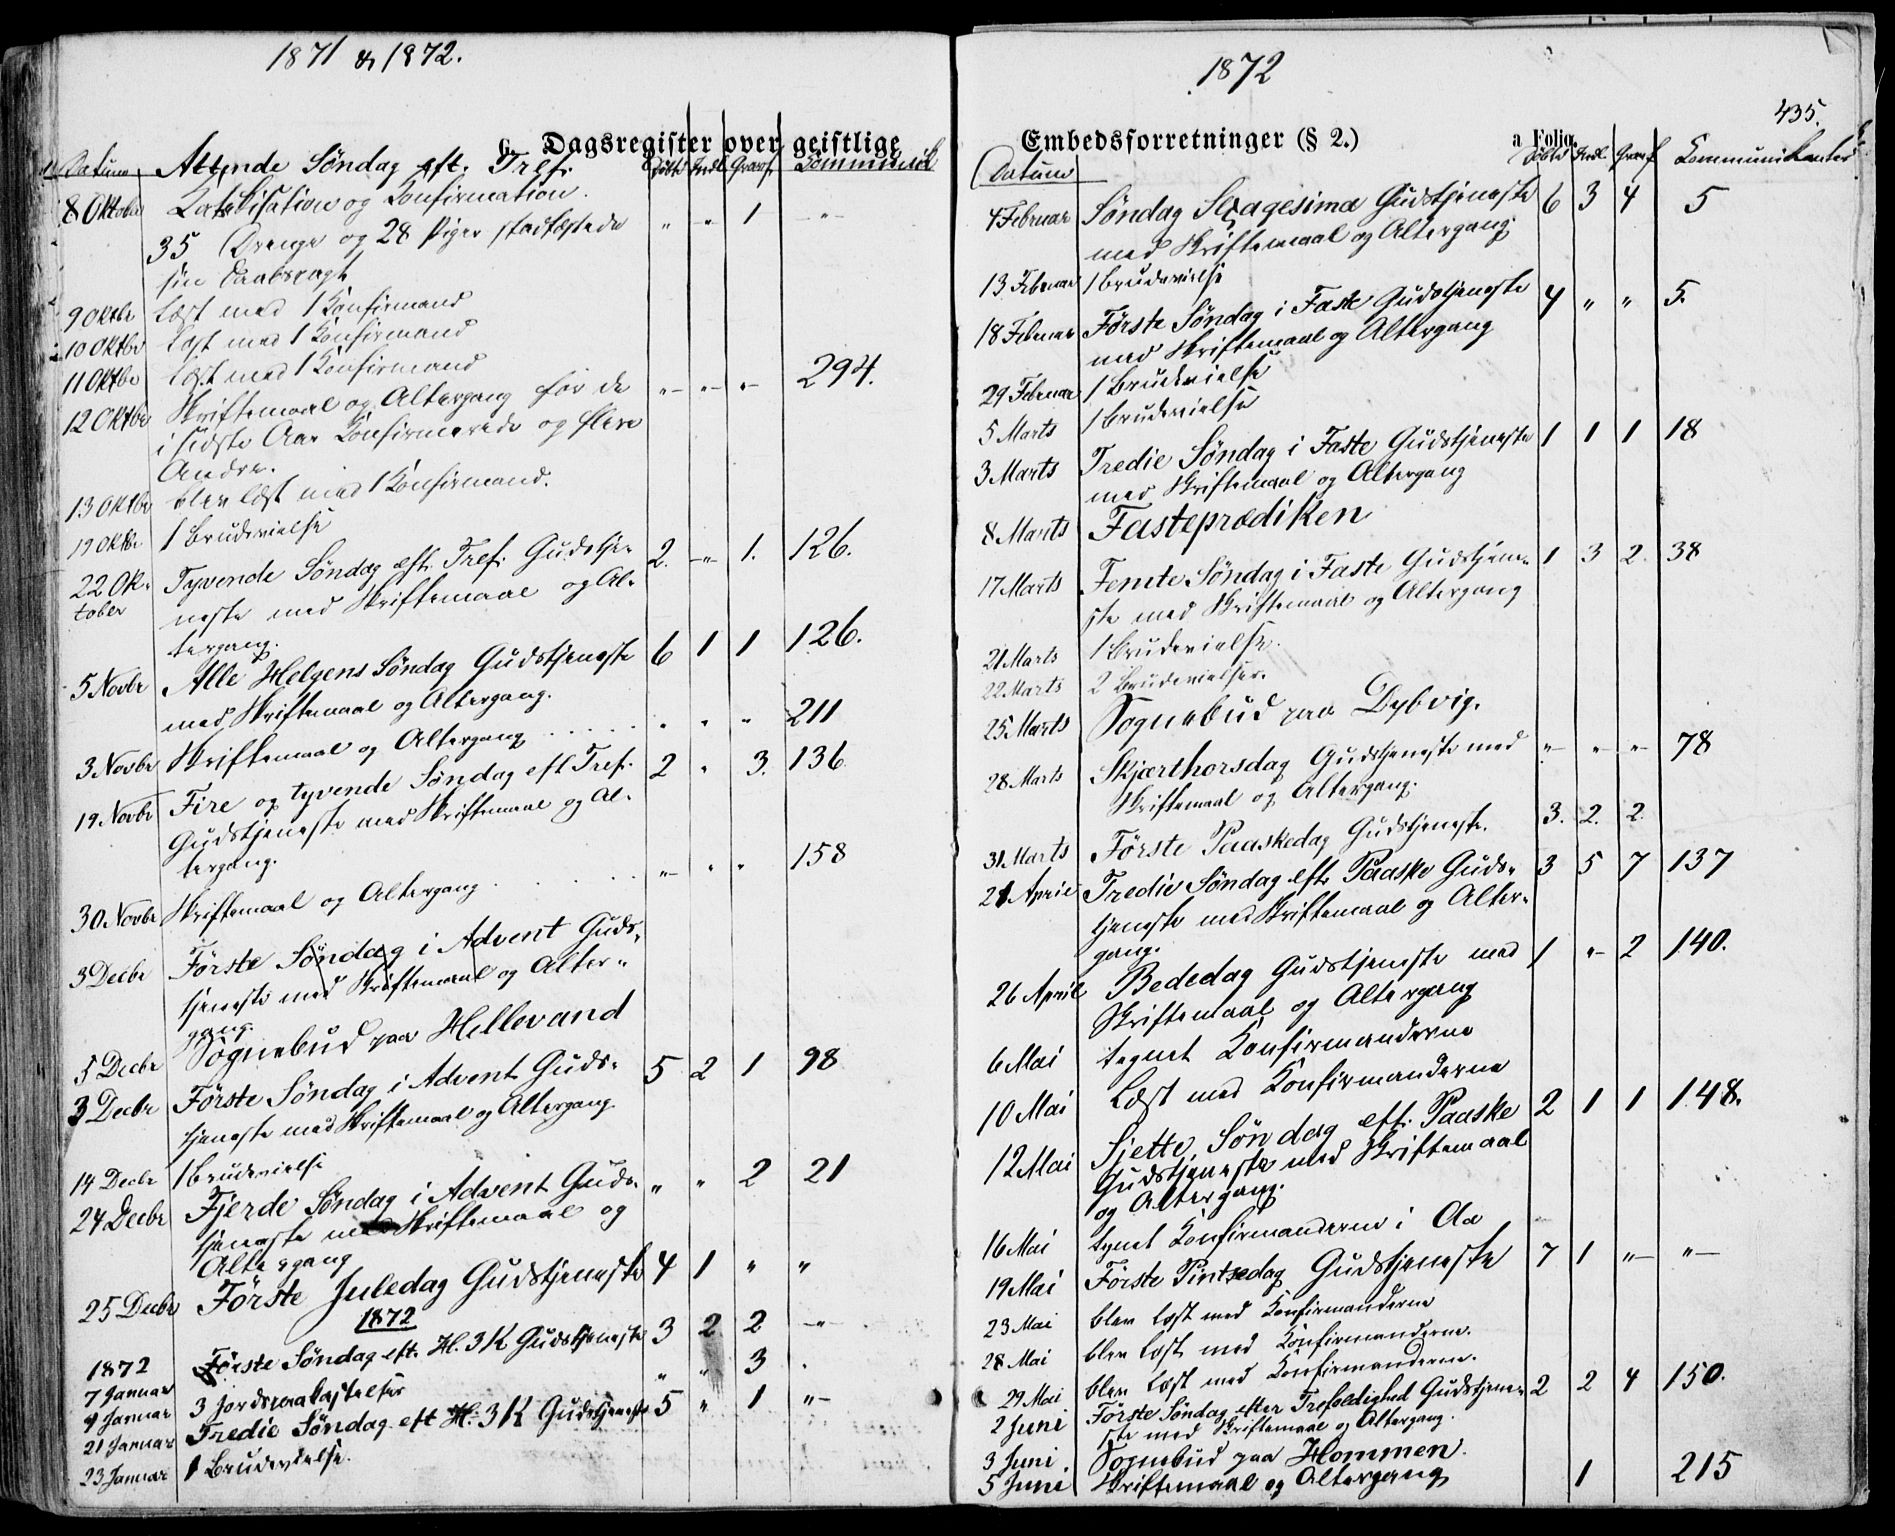 1871 & 1872.
G. Dagsregister over geistlige
Datum Døbte Indl Gravf. Kommunik
Attende Søndag eft. Tref.
8 Oktober Katekisation og Konfirmation. " " 1 "
35 Drenge og 28 Piger stadfæstede
sin Daabspagt
9 Oktbr Læst med 1 Konfirmand
10 Oktbr Læst med 1 Konfirmand
11 Oktbr Læst med 1 Konfirmand
12 Oktbr Skriftemaal og Altergang for de " " " 294.
i sidste Aar Konfirmerede og flere
Andre.
13 Oktbr blev læst med 1 Konfirmand.
19 Oktbr 1 Brudevielse
22 Ok- Tyvende Søndag eft. Tref. Gudstje- 2. " 1. 126.
tober neste med Skriftemaal og Al-
tergang.
5 Novbr Alle Helgens Søndag Gudstjeneste 6 1 1 126.
med Skriftemaal og Altergang.
3 Novbr Skriftemaal og Altergang . . . . . " " " 211
19 Novbr Fire og tyvende Søndag eft Tref. 2 " 3. 136
Gudstjeneste med Skriftemaal og Al-
tergang.
30 Novbr Skriftemaal og Altergang . . . . . " " " 158
3 Decbr Förste Søndag i Advent Guds-
tjeneste med Skriftemaal og Alter-
gang.
5 Decbr Sognebud paa Hellevand
3 Decbr Förste Søndag i Advent Guds- 5 2 1 98
tjeneste med Skriftemaal og Altergang
14 Decbr 1 Brudevielse
24 Decbr Fjerde Søndag i Advent Guds- " " 2 21
tjeneste med Skriftemaal og
Altergang
25 Decbr Förste Juledag Gudstjeneste 4 1 " "
1872
1872
7 Januar Förste Søndag eft. H. 3 K Gudstjeneste 3 2 2 "
9 Januar 3 Jordspaakastelser " " 3 .
21 Januar Tredie Søndag eft H. 3 K Gudstjeneste 5 " 1 "
23 Januar 1 Brudevielse.
1872
435.
Embedsforretninger (§ 2.) a Folio.
Datum Døbte Indl Gravf Kommunikanter
4 Februar Søndag Sexagesima Gudstjeneste 6 3 4 5
med Skriftemaal og Altergang
13 Februar 1 Brudevielse
18 Februar Förste Søndag i Faste Gudstjeneste 4 " " 5.
med Skriftemaal og Altergang
29 Februar 1 Brudevielse
5 Marts 1 Brudevielse
3 Marts Tredie Søndag i Faste Gudstjeneste 1 1 1 18
med Skriftemaal og Altergang
8 Marts Fasteprædiken
17 Marts Femte Søndag i Faste Gudstjene- 1 3 2. 38
ste med Skriftemaal og Altergang
21 Marts 1 Brudevielse.
22 Marts 2 Brudevielser.
25 Marts Sognebud paa Dybvig.
28 Marts Skjærthorsdag Gudstjeneste med " " " 78
Skriftemaal og Altergang.
31 Marts Förste Paaskedag Gudstjeneste. 3. 2. 2.
21 April Tredie Søndag eft. Paaske Guds- 3 5 7 137
tjeneste med Skriftemaal og Alter-
gang.
26 April Bededag Gudstjeneste med 1 " 2 140.
Skriftemaal og Altergang
6 Mai tegnet Konfirmanderne
10 Mai Læst med Konfirmanderne
12 Mai Sjette Søndag eft. Paaske 2 1 1 148.
Gudstjeneste med Skriftemaal
og Altergang.
16 Mai tegnet Konfirmanderne i Aa
19 Mai Förste Pintsedag Gudstjeneste 7 1 " "
23 Mai blev læst med Konfirmanderne
28 Mai blev læst med Konfirmanderne.
29 Mai blev læst med Konfirmanderne.
2 Juni Förste Søndag efter Trefoldighed Gudstjene- 2 2 4 150.
ste med Skriftemaal og Altergang.
3 Juni Sognebud paa Hommen.
5 Juni Skriftemaal og Altergang 1 215